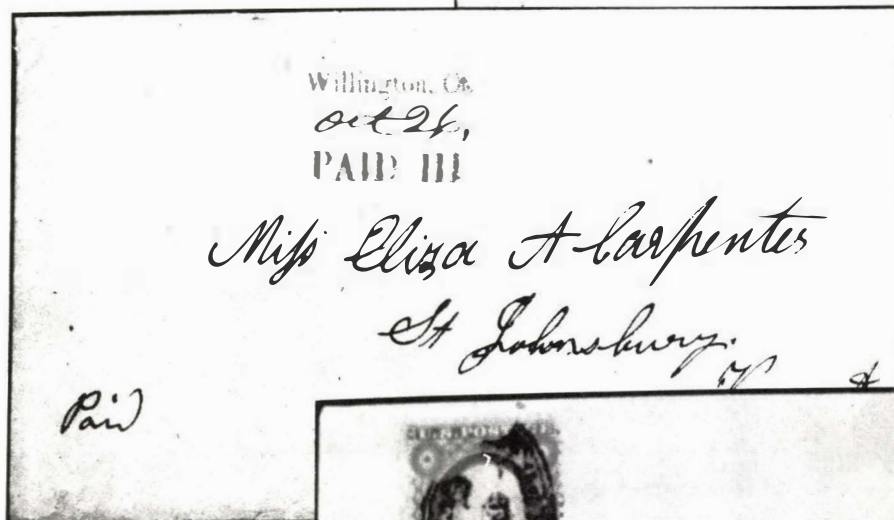 Willington, Ct.
Oct 26,
PAID III
Miss Eliza A Carpenter
St Johnsbury.
V t
Paid
U.S. POSTAGE